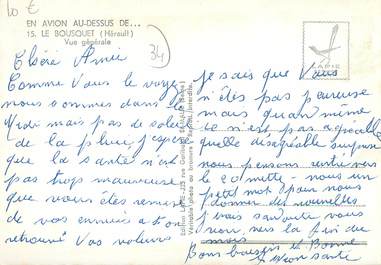 10 €
EN AVION AU-DESSUS DE...
15. LE BOUSQUET (Hérault)
Vue générale
34
LAPIE
Chère Amie
Comme Vous le voyez
nous sommes dans le
Midi mais pas de soleil
de la pluie, j'espère
que la santé n'est
pas trop mauvaise
que vous êtes remise
de vos ennuis a t on
retrouvé Vos voleurs
je sais que Vous
n'êtes pas peureuse
mais quand même
ce n'est pas agréable
quelle désagréable surprise
nous pensons rentré vers
le 20 mette - nous un
petit mot pour nous
donner des nouvelles
j'vais sans
voir vers la fin du
mois
Bons baisers et Bonne
santé